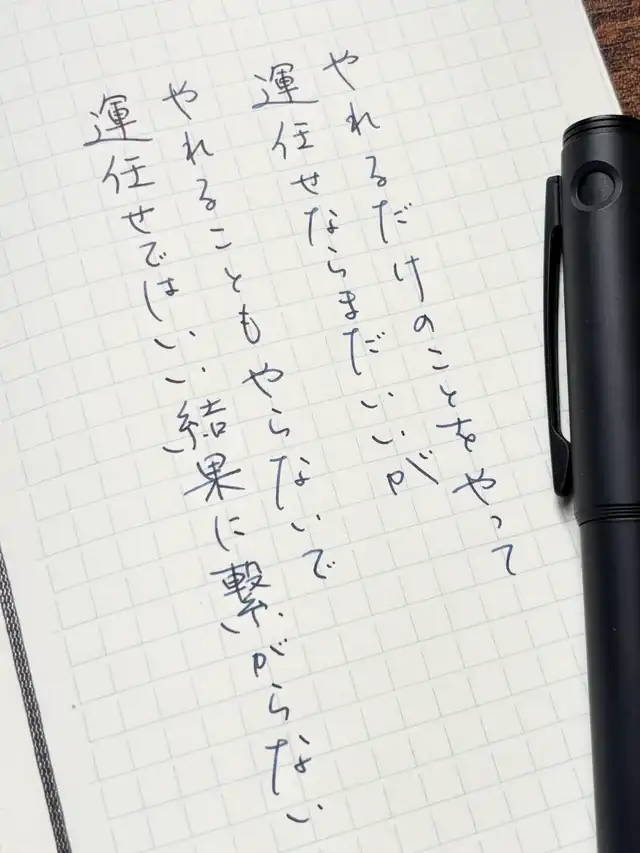 やれるだけのことをやって
運任せならまだいいが
やれることもやらないで
運任せではいい結果に繋がらない